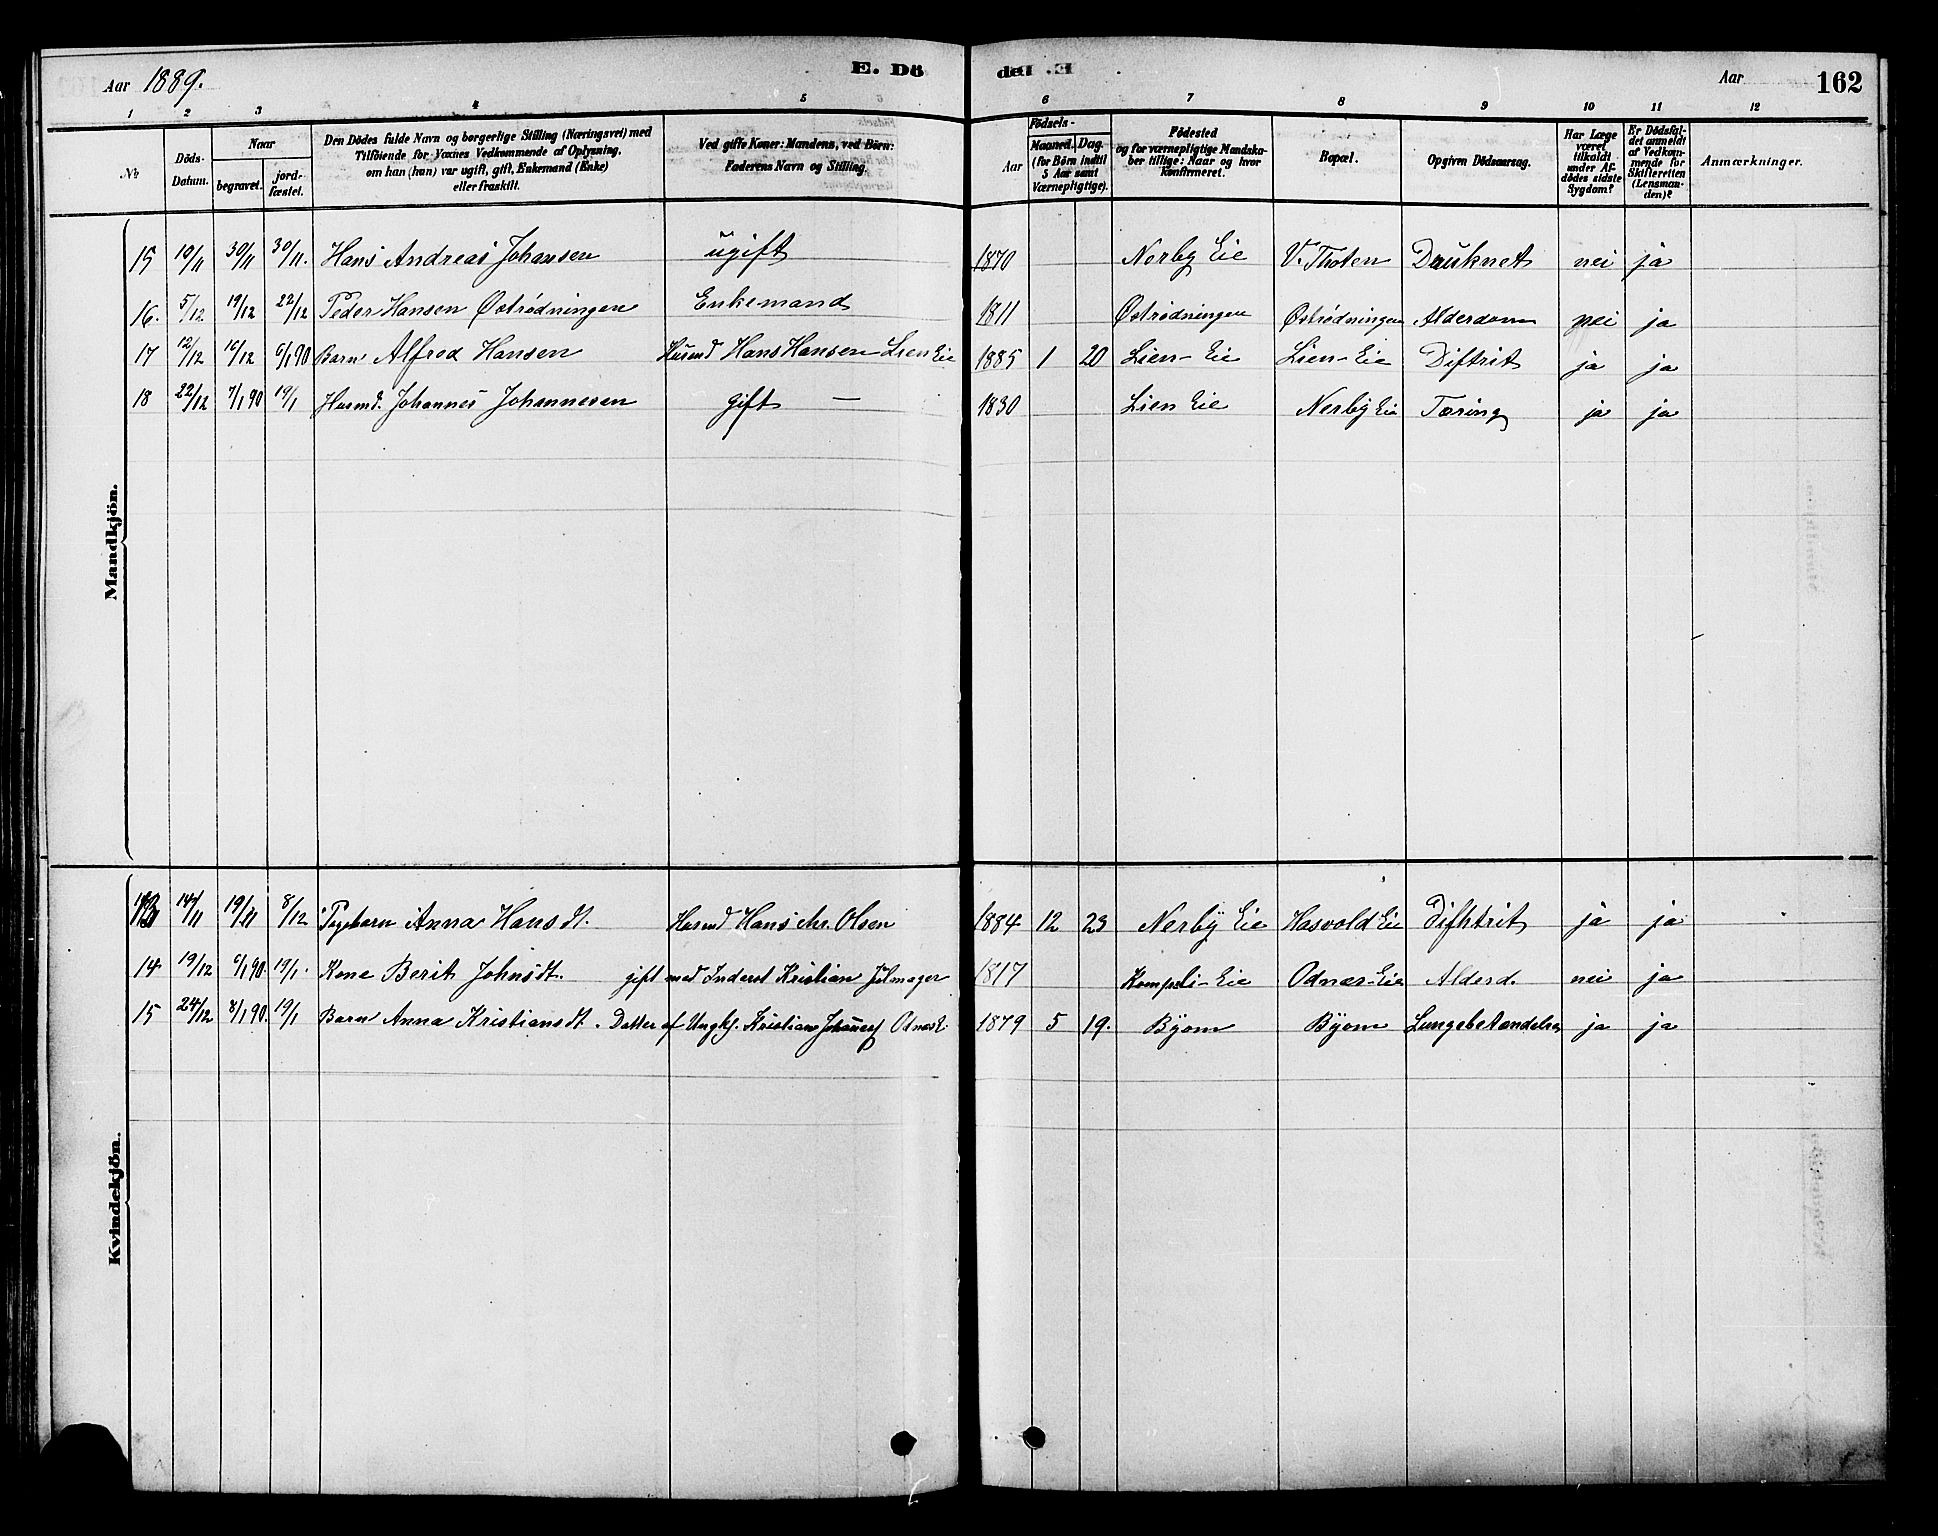 Aar 1889. E. Dö
de E. D Aar 162
1 2 3 4 5 6 7 8 9 10 11 12
No Döds-Datum. Naar begravet. jord-fæstet. Den Dödes fulde Navn og borgerlige Stilling (Næringsvei) med Tilföiende for Voxnes Vedkommende af Oplysning, om han (hun) var ugift, gift, Enkemand (Enke) eller fraskilt. Ved gifte Koner: Mandens, ved Börn: Faderens Navn og Stilling. Födsels- Aar Maaned. Dag. (for Börn indtil 5 Aar samt Værnepligtige). Födested og for værnepligtige Mandskaber tillige: Naar og hvor konfirmeret. Bopæl. Opgiven Dödsaarsag. Har Læge været tilkaldt under Afdödes sidste Sygdom? Er Dödsfaldet anmeldt af Vedkommende for Skifteretten (Lensmanden)? Anmærkninger.
Mandkjön.
15 19/11 30/11 30/11. Hans Andreas Johansen ugift 1870 Norby Eie V. Thoten Druknet nei ja
16. 5/12 19/12 22/12 Peder Hansen Østrødningen Enkemand 1811 Østrødningen Østrødningen Alderdom nei ja
17 12/12 16/12 6/1 90 Barn Alfred Hansen Husmd Hans Hansen Lien Eie 1885 1 20 Lien-Eie Lien-Eie Diftrit ja ja
18 22/12 7/1 90 19/1 Husmd. Johannes Johannesen gift — 1830 Lien Eie Nerby Eie Tæring ja ja
Kvindekjön.
13 14/11 19/11 8/12 Pigebarn Anna Hansdt. Husmd Hans Chr. Olsen 1884 12 23 Nerby Eie Hasvold Eie Difhtrit ja ja
14 19/12 6/1 90 19/1. Kone Berit Johnsdt. gift med Inderst Kristian Julmager 1817 Kompeli-Eie Odnæs-Eie Alderd. nei ja
15 24/12 8/1 90. 19/1 Barn Anna Kristiansdt. Datter af Ungkf. Kristian Johanes Odnæs E. 1879 5 19. Byom Byom Lungebetændelse ja ja